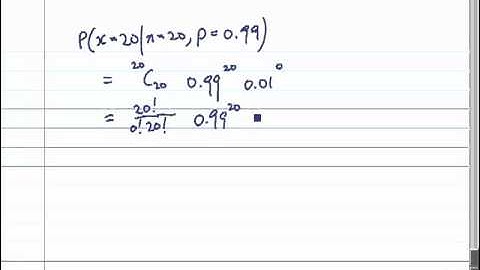 P(x=20|n=20, p=0.99)
= ²⁰C₂₀ 0.99²⁰ 0.01⁰
= 20!/0!20! 0.99²⁰